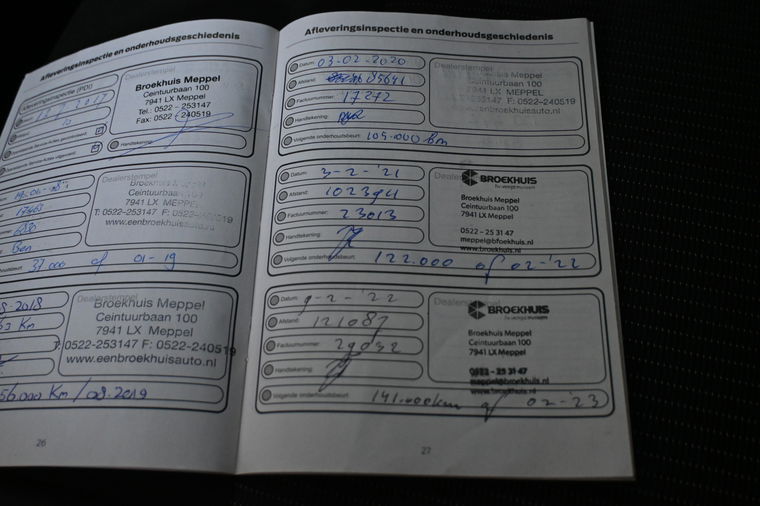 Afleveringsinspectie en onderhoudsgeschiedenis
Afleveringsinspectie (PDI)
Dealerstempel
Broekhuis Meppel
Ceintuurbaan 100
7941 LX Meppel
Tel.: 0522 - 253147
Fax: 0522 - 240519
Handtekening:
Dealerstempel
Ceintuurbaan 100
7941 LX MEPPEL
T: 0522-253147 F: 0522-240519
www.eenbroekhuisauto.nl
37.000 of 01-19
Dealerstempel
Broekhuis Meppel
Ceintuurbaan 100
7941 LX Meppel
T: 0522-253147 F: 0522-240519
www.eenbroekhuisauto.nl
56.000 Km / 08.2019
26
Afleveringsinspectie en onderhoudsgeschiedenis
Datum: 03-02-2020
Afstand: 85641
Factuurnummer: 17272
Handtekening:
Volgende onderhoudsbeurt: 105.000 km
Dealerstempel
Ceintuurbaan 100
7941 LX MEPPEL
F: 0522-240519
www.eenbroekhuisauto.nl
Datum: 3-2-'21
Afstand: 102394
Factuurnummer: 23013
Handtekening:
Volgende onderhoudsbeurt: 122.000 of 02-'22
BROEKHUIS
Broekhuis Meppel
Ceintuurbaan 100
7941 LX Meppel
0522 - 25 31 47
meppel@broekhuis.nl
www.broekhuis.nl
Datum: 9-2-'22
Afstand: 121087
Factuurnummer: 29032
Handtekening:
Volgende onderhoudsbeurt: 141.000km of 02-'23
Dealerstempel
BROEKHUIS
Broekhuis Meppel
Ceintuurbaan 100
7941 LX Meppel
0522 - 25 31 47
meppel@broekhuis.nl
www.broekhuis.nl
27